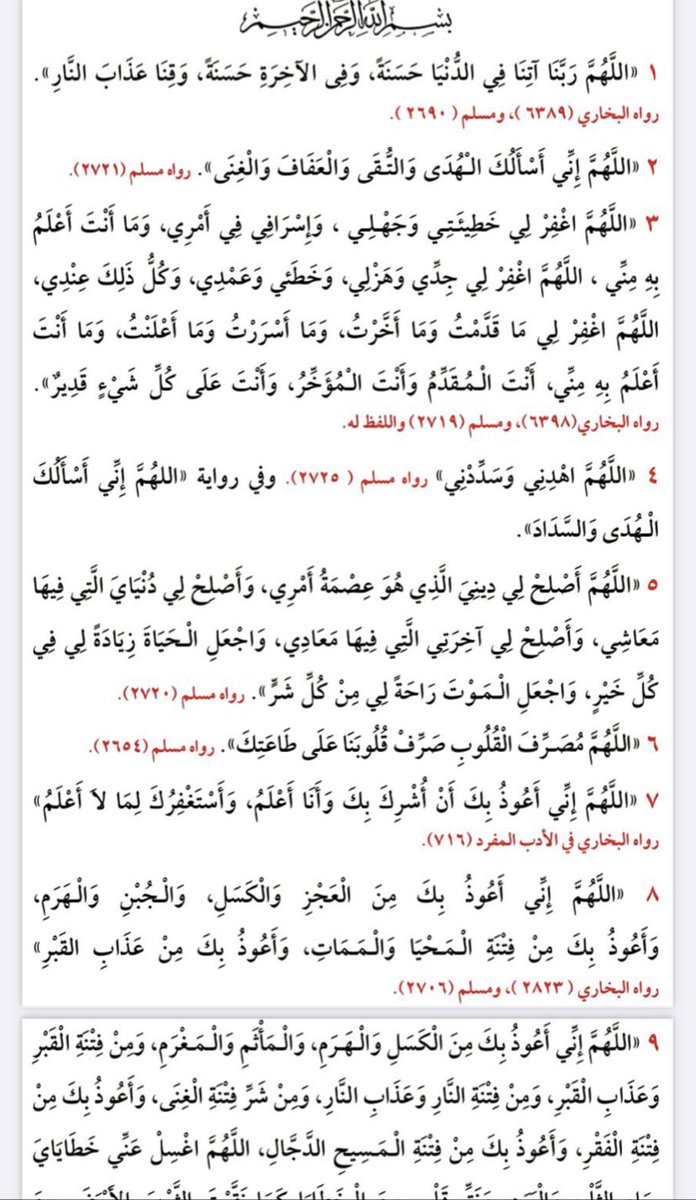 بسم الله الرحمن الرحيم
١ «اللَّهُمَّ رَبَّنَا آتِنَا فِي الدُّنْيَا حَسَنَةً، وَفِي الآخِرَةِ حَسَنَةً، وَقِنَا عَذَابَ النَّارِ».
رواه البخاري (٦٣٨٩)، ومسلم (٢٦٩٠).
٢ «اللَّهُمَّ إِنِّي أَسْأَلُكَ الْهُدَى وَالتُّقَى وَالْعَفَافَ وَالْغِنَى». رواه مسلم (٢٧٢١).
٣ «اللَّهُمَّ اغْفِرْ لِي خَطِيئَتِي وَجَهْلِي ، وَإِسْرَافِي فِي أَمْرِي، وَمَا أَنْتَ أَعْلَمُ
بِهِ مِنِّي ، اللَّهُمَّ اغْفِرْ لِي جِدِّي وَهَزْلِي، وَخَطَئِي وَعَمْدِي، وَكُلُّ ذَلِكَ عِنْدِي،
اللَّهُمَّ اغْفِرْ لِي مَا قَدَّمْتُ وَمَا أَخَّرْتُ، وَمَا أَسْرَرْتُ وَمَا أَعْلَنْتُ، وَمَا أَنْتَ
أَعْلَمُ بِهِ مِنِّي، أَنْتَ الْمُقَدِّمُ وَأَنْتَ الْمُؤَخِّرُ، وَأَنْتَ عَلَى كُلِّ شَيْءٍ قَدِيرٌ».
رواه البخاري(٦٣٩٨)، ومسلم (٢٧١٩) واللفظ له.
٤ «اللَّهُمَّ اهْدِنِي وَسَدِّدْنِي» رواه مسلم ( ٢٧٢٥). وفي رواية «اللهُمَّ إِنِّي أَسْأَلُكَ
الْهُدَى وَالسَّدَادَ».
٥ «اللَّهُمَّ أَصْلِحْ لِي دِينِيَ الَّذِي هُوَ عِصْمَةُ أَمْرِي، وَأَصْلِحْ لِي دُنْيَايَ الَّتِي فِيهَا
مَعَاشِي، وَأَصْلِحْ لِي آخِرَتِي الَّتِي فِيهَا مَعَادِي، وَاجْعَلِ الْحَيَاةَ زِيَادَةً لِي فِي
كُلِّ خَيْرٍ، وَاجْعَلِ الْمَوْتَ رَاحَةً لِي مِنْ كُلِّ شَرٍّ». رواه مسلم (٢٧٢٠).
٦ «اللَّهُمَّ مُصَرِّفَ الْقُلُوبِ صَرِّفْ قُلُوبَنَا عَلَى طَاعَتِكَ». رواه مسلم (٢٦٥٤).
٧ «اللَّهُمَّ إِنِّي أَعُوذُ بِكَ أَنْ أُشْرِكَ بِكَ وَأَنَا أَعْلَمُ، وَأَسْتَغْفِرُكَ لِمَا لاَ أَعْلَمُ»
رواه البخاري في الأدب المفرد (٧١٦).
٨ «اللَّهُمَّ إِنِّي أَعُوذُ بِكَ مِنَ الْعَجْزِ وَالْكَسَلِ، وَالْجُبْنِ وَالْهَرَمِ،
وَأَعُوذُ بِكَ مِنْ فِتْنَةِ الْمَحْيَا وَالْمَمَاتِ، وَأَعُوذُ بِكَ مِنْ عَذَابِ القَبْرِ»
رواه البخاري ( ٢٨٢٣ )، ومسلم (٢٧٠٦).
٩ «اللَّهُمَّ إِنِّي أَعُوذُ بِكَ مِنَ الْكَسَلِ وَالْهَرَمِ، وَالْمَأْثَمِ وَالْمَغْرَمِ، وَمِنْ فِتْنَةِ الْقَبْرِ
وَعَذَابِ الْقَبْرِ، وَمِنْ فِتْنَةِ النَّارِ وَعَذَابِ النَّارِ، وَمِنْ شَرِّ فِتْنَةِ الْغِنَى، وَأَعُوذُ بِكَ مِنْ
فِتْنَةِ الْفَقْرِ، وَأَعُوذُ بِكَ مِنْ فِتْنَةِ الْمَسِيحِ الدَّجَّالِ، اللَّهُمَّ اغْسِلْ عَنِّي خَطَايَايَ